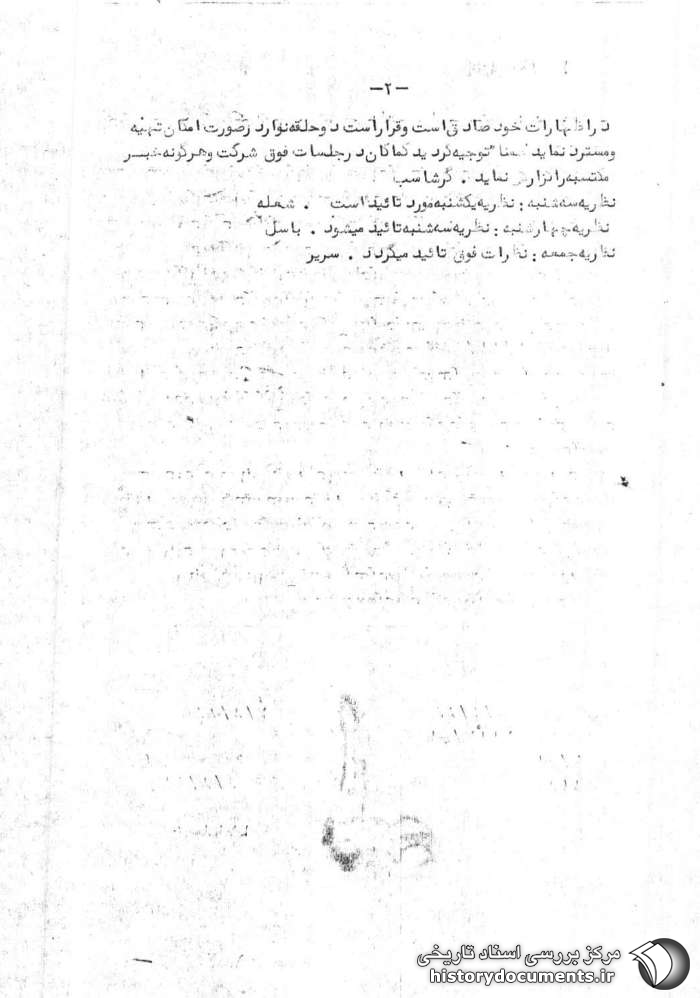 -۲-
در اظهارات خود صادق است و قرار است دو حلقه نوار در صورت امکان تهیه
و مسترد نماید ضمنا" توجیه گردید کماکان در جلسات فوق شرکت و هرگونه خبر
مکتسبه را گزارش نماید . گرشاسب
نظریه سه شنبه : نظریه یکشنبه مورد تائید است . شعله
نظریه چهارشنبه : نظریه سه شنبه تائید میشود . باسل
نظریه جمعه : نظرات فوق تائید میگردد . سریر
مرکز بررسی اسناد تاریخی
historydocuments.ir